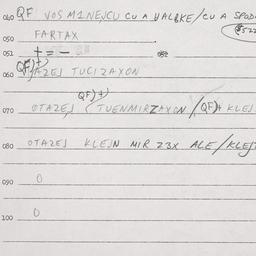 040 QF VOS M1NEJCU CU A VALBKE/CU A SPOD
050 FARTAX
051 + = -
QF)+)
060 OTAZEJ TUCIZAXON
QF)+)
070 OTAZEJ (TUENMIRZAXON/QF)+ KLEJ
080 OTAZEJ KLEJN MIR Z3X ALE/KLEJ
090 0
100 0